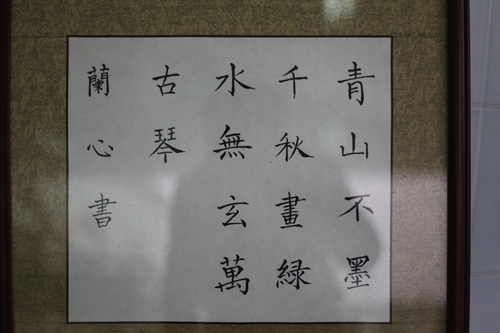 青山不墨
千秋畫緑
水無玄萬
古琴
蘭心書